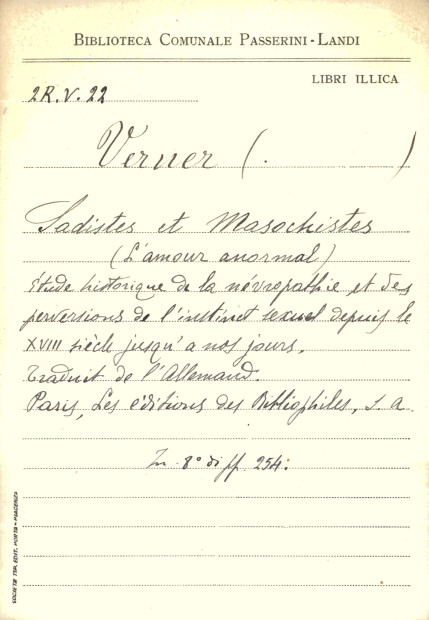 BIBLIOTECA COMUNALE PASSERINI-LANDI
LIBRI ILLICA
2R.V.22
Verner ( . )
Sadistes et Masochistes
(L'amour anormal)
Etude historique de la névropathie et des
perversions de l'instinct sexuel depuis le
XVIII siècle jusqu'a nos jours.
Traduit de l'Allemand.
Paris, Les éditions des Bibliophiles, s. a.
In 8° di pp. 254.
SOCIETÀ TIP. EDIT. PORTA - PIACENZA